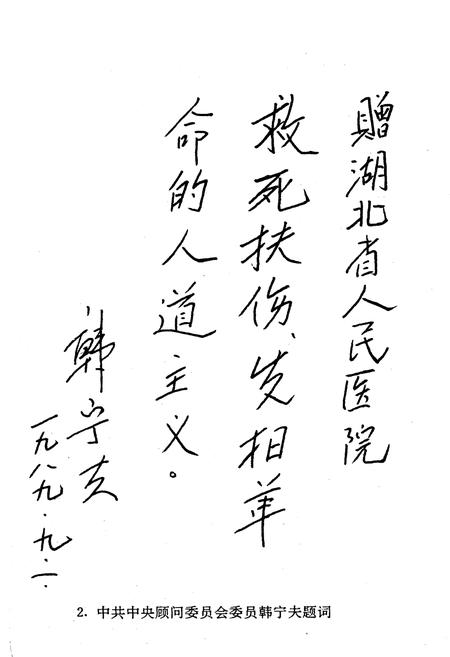 赠湖北省人民医院
救死扶伤、发扬革
命的人道主义。
韩宁夫
一九八九.九.
2. 中共中央顾问委员会委员韩宁夫题词